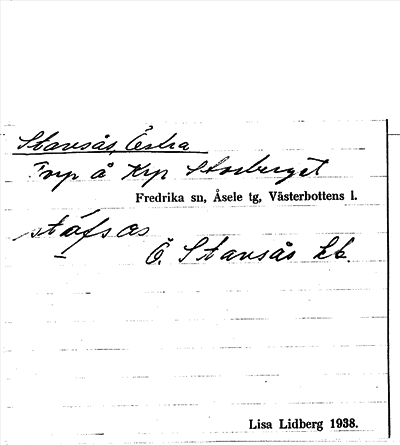 Stavsås, Östra
Torp å Krp Storberget
Fredrika sn, Åsele tg, Västerbottens l.
stáfsås
Ö. Stavsås kb.
Lisa Lidberg 1938.